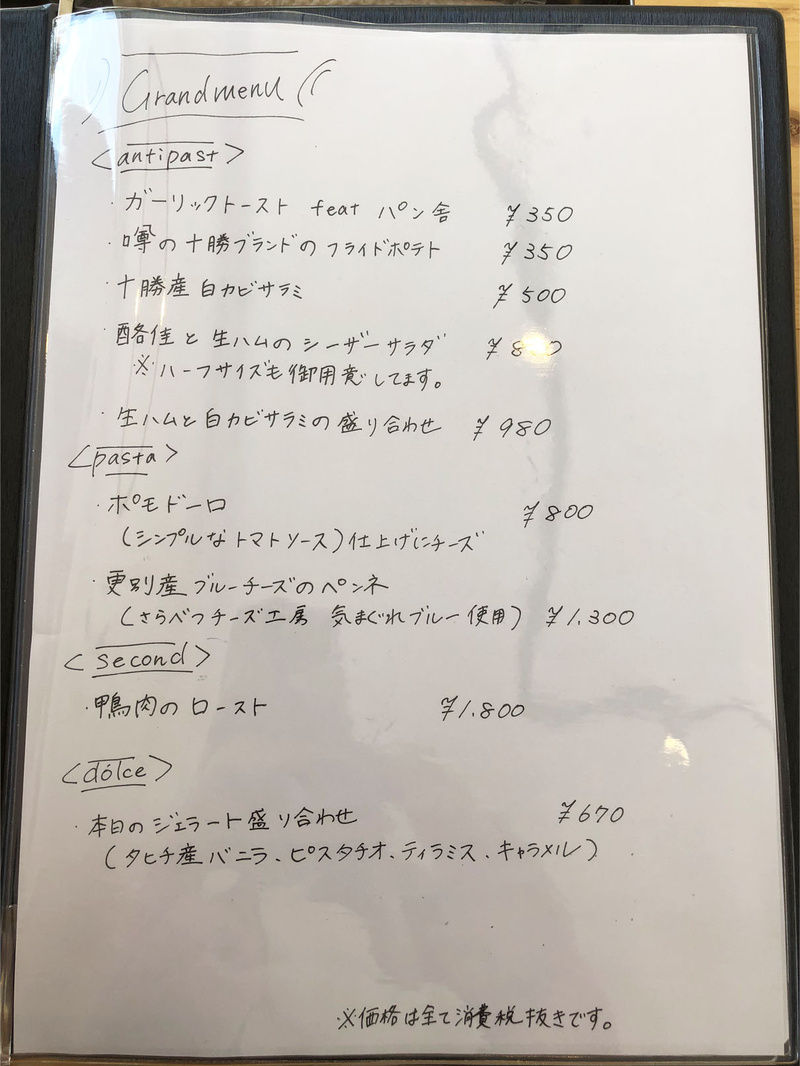 Grandmenu
<antipast>
・ガーリックトースト feat パン舎 ¥350
・噂の十勝ブランドのフライドポテト ¥350
・十勝産白カビサラミ ¥500
酪佳と生ハムのシーザーサラダ
※ハーフサイズも御用意してます。
・生ハムと白カビサラミの盛り合わせ ¥980
<pasta>
・ポモドーロ ¥800
(シンプルなトマトソース)仕上げにチーズ
・更別産ブルーチーズのペンネ
(さらべつチーズ工房 気まぐれブルー使用) ¥1.300
<second>
・鴨肉のロースト ¥1.800
<dolce>
・本日のジェラート盛り合わせ ¥670
(タヒチ産バニラ、ピスタチオ、ティラミス、キャラメル)
※価格は全て消費税抜きです。